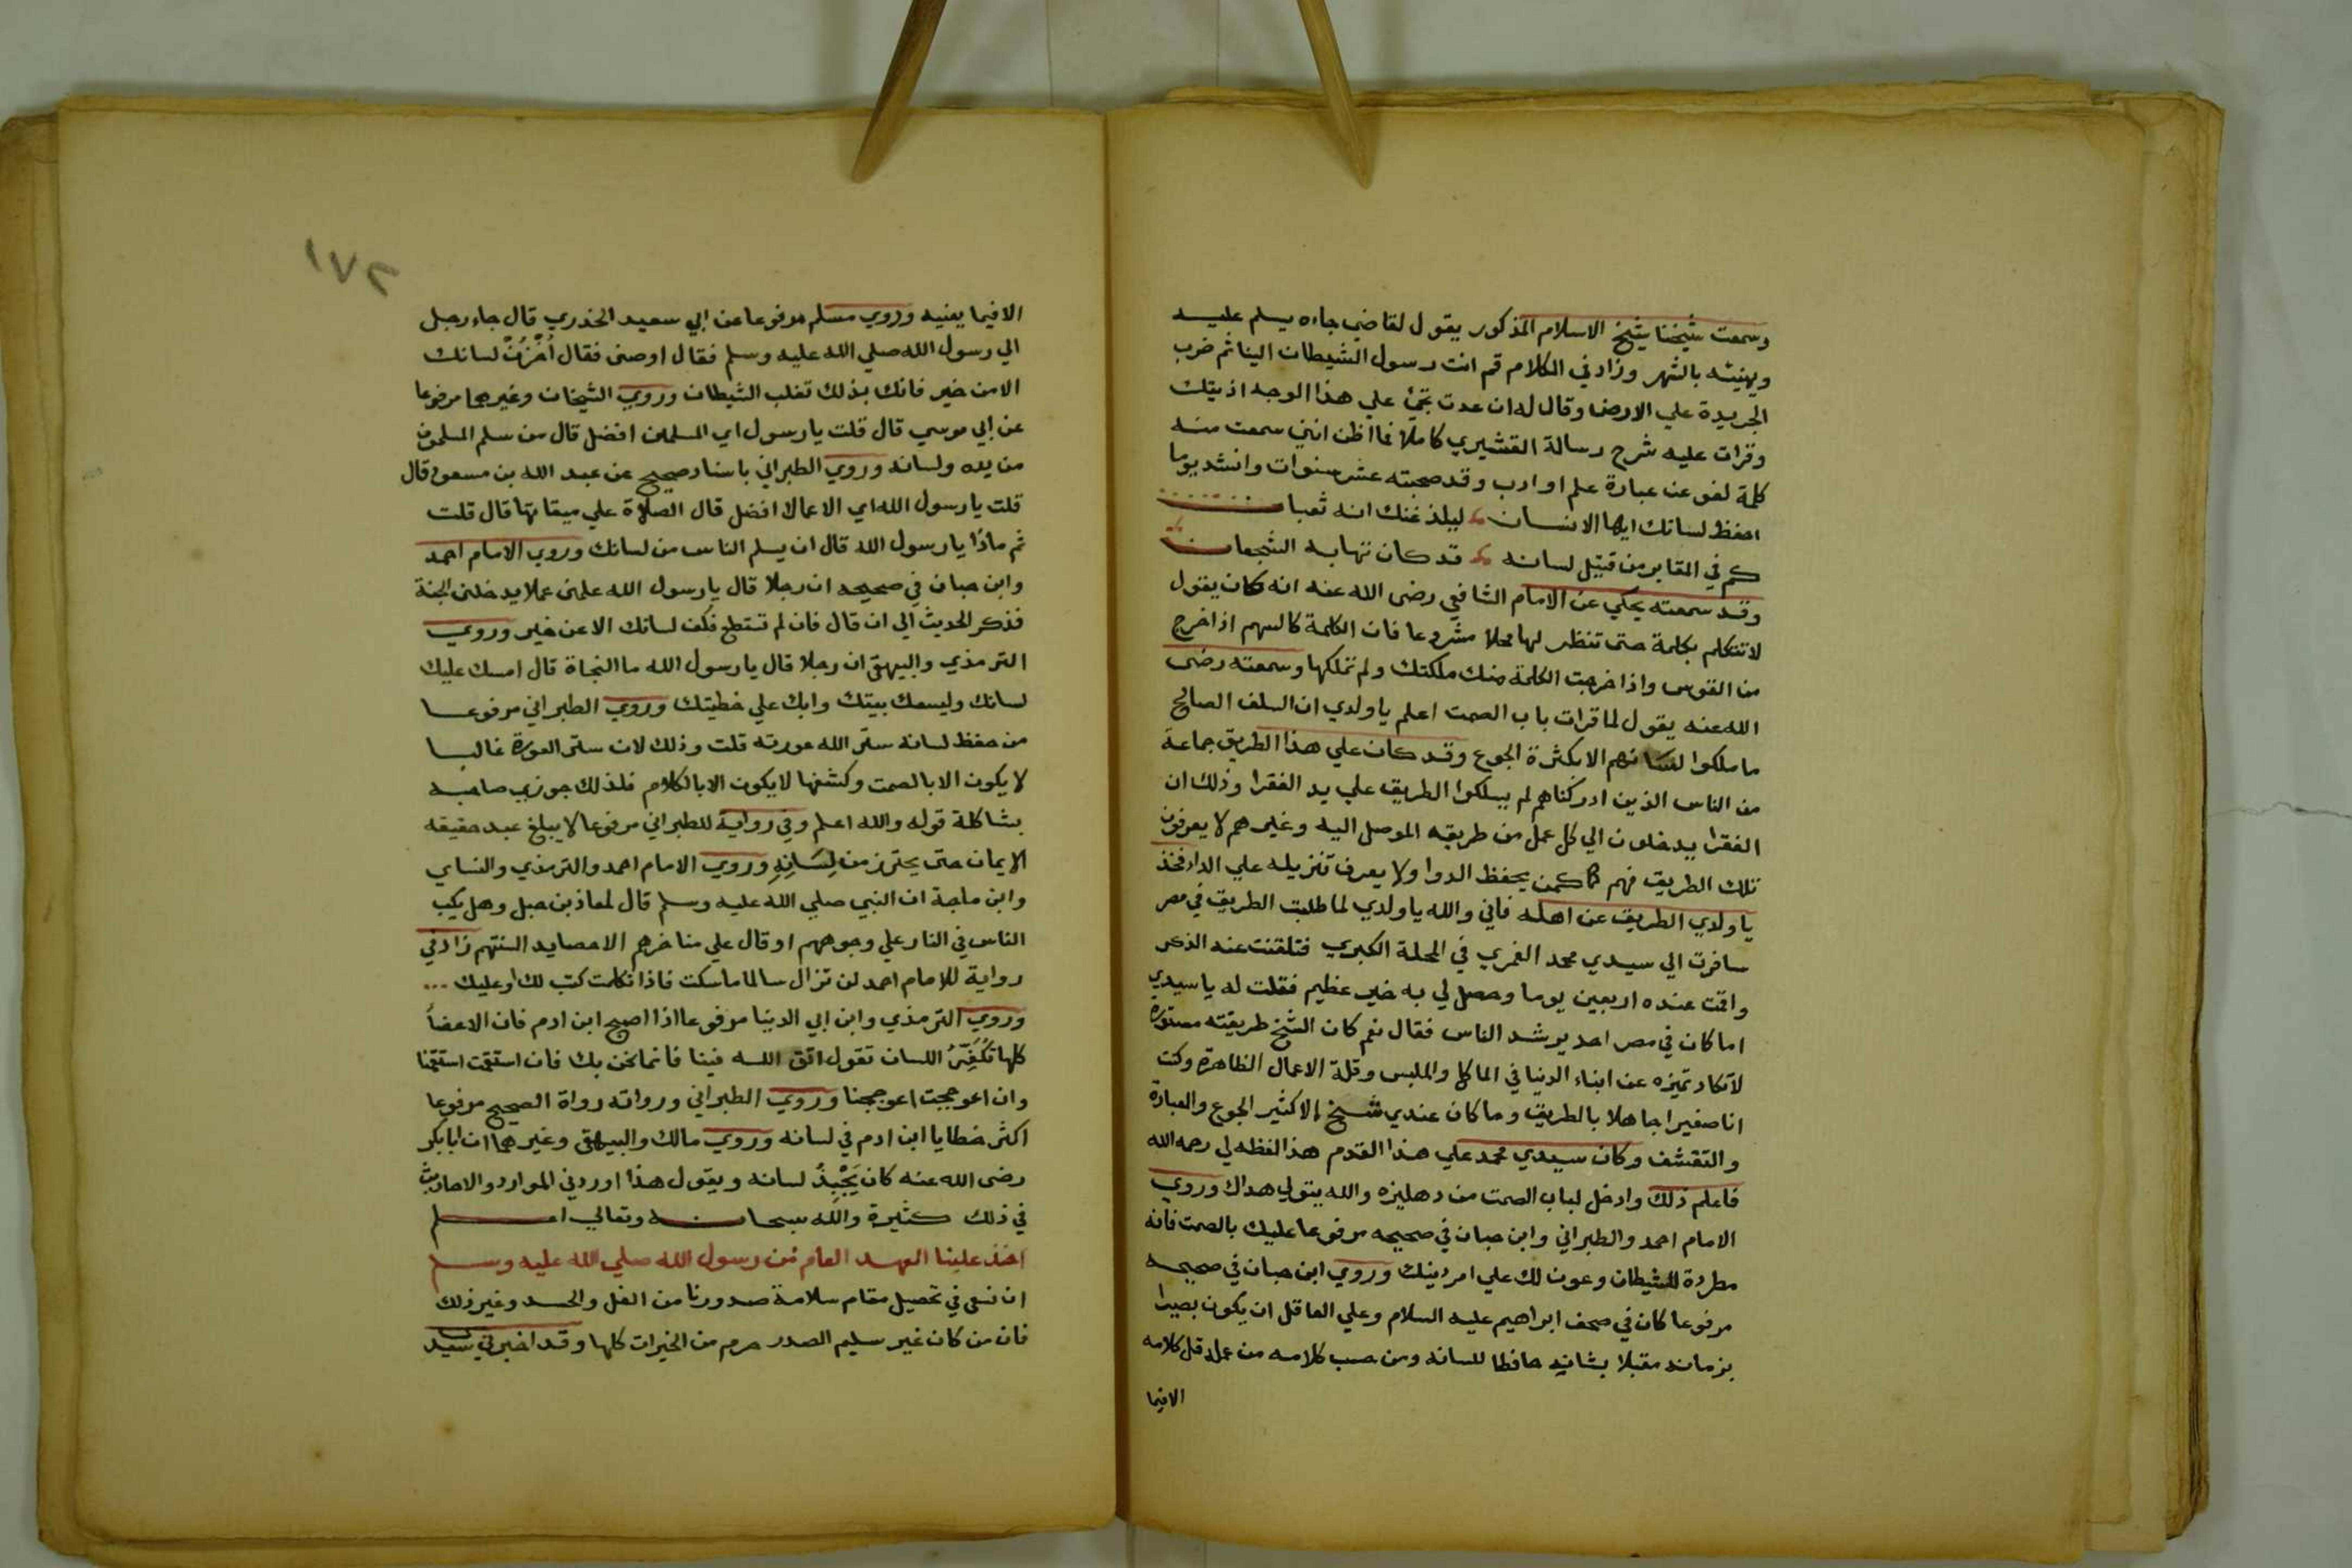 وسمعت شيخنا شيخ الاسلام المذكور يقول لقاضي جاءه يسلم عليه
ويهنيه بالشهر وزاد في الكلام قم انت رسول الشيطان الينا ثم ضرب
الجريدة علي الارض وقال له ان عدت تجئ علي هذا الوجه اذيتك
وقرات عليه شرح رسالة القشيري كاملا فما اظن انني سمعت منه
كلمة لغو عن عبارة علم او ادب وقد صحبته عشر سنوات وانشد يوما
احفظ لسانك ايها الانسان ليلدغنك انه ثعبان
كم في المقابر من قتيل لسانه قد كان تهابه الشجعان
وقد سمعته يحكي عن الامام الشافعي رضى الله عنه انه كان يقول
لا تتكلم بكلمة حتى تنظر لها محلا مشروعا فان الكلمة كالسهم اذا خرج
من القوس واذا خرجت الكلمة منك ملكتك ولم تملكها وسمعته رضى
الله عنه يقول لما قرات باب الصمت اعلم يا ولدي ان السلف الصالح
ما ملكوا لسانهم الا بكثرة الجوع وقد كان علي هذا الطريق جماعة
من الناس الذين ادركناهم لم يسلكوا الطريق علي يد الفقرا وذلك ان
الفقرا يدخلون الي كل عمل من طريقه الموصل اليه وغيرهم لا يعرفون
تلك الطريق فهم كمن يحفظ الدوا ولا يعرف تنزيله علي الداء فخذ
يا ولدي الطريق عن اهله فاني والله يا ولدي لما طلبت الطريق في مصر
سافرت الي سيدي محمد الغمري في المحلة الكبري فتلقنت عنه الذكر
واقمت عنده اربعين يوما وحصل لي به خير عظيم فقلت له يا سيدي
اما كان في مصر احد يرشد الناس فقال نعم كان الشيخ طريقته مستورة
لا تكاد تميزه عن ابناء الدنيا في الماكل والملبس وقلة الاعمال الظاهرة وكنت
انا صغيرا جاهلا بالطريق وما كان عندي شيخ الا كثير الجوع والعبادة
والتقشف وكان سيدي محمد علي هذا القدم هذا لفظه لي رحمه الله
فاعلم ذلك وادخل لباب الصمت من دهليزه والله يتولي هداك وروي
الامام احمد والطبراني وابن حبان في صحيحه مرفوعا عليك بالصمت فانه
مطردة للشيطان وعون لك علي امر دينك وروي ابن حبان في صحيحه
مرفوعا كان في صحف ابراهيم عليه السلام وعلي العاقل ان يكون بصيرا
بزمانه مقبلا بشانه حافظا للسانه ومن حسب كلامه من عمله قل كلامه
الا فيما
١٧٢
الا فيما يعنيه وروي مسلم مرفوعا عن ابي سعيد الخدري قال جاء رجل
الي رسول الله صلي الله عليه وسلم فقال اوصنى فقال اُخْزُنْ لسانك
الا من خير فانك بذلك تغلب الشيطان وروي الشيخان وغيرهما مرفوعا
عن ابي موسي قال قلت يا رسول اي المسلمين افضل قال من سلم المسلمون
من يده ولسانه وروي الطبراني باسناد صحيح عن عبد الله بن مسعود قال
قلت يا رسول الله اي الاعمال افضل قال الصلاة علي ميقاتها قال قلت
ثم ماذا يا رسول الله قال ان يسلم الناس من لسانك وروي الامام احمد
وابن حبان في صحيحه ان رجلا قال يا رسول الله علمنى عملا يدخلنى الجنة
فذكر الحديث الي ان قال فان لم تستطع فكف لسانك الا عن خير وروي
الترمذي والبيهقى ان رجلا قال يا رسول الله ما النجاة قال امسك عليك
لسانك وليسعك بيتك وابك علي خطيتك وروي الطبراني مرفوعا
من حفظ لسانه ستر الله عورته قلت وذلك لان ستر العورة غالبا
لا يكون الا بالصمت وكشفها لا يكون الا بالكلام فلذلك جوزي صاحبه
بشاكلة قوله والله اعلم وفي رواية للطبراني مرفوعا لا يبلغ عبد حقيقه
الايمان حتى يحترز من لِسَانِهِ وروي الامام احمد والترمذي والنساي
وابن ماجة ان النبي صلي الله عليه وسلم قال لمعاذ بن جبل وهل يكب
الناس في النار علي وجوههم او قال علي مناخرهم الا حصايد السنتهم زاد في
رواية للامام احمد لن تزال سالما ما سكت فاذا تكلمت كتب لك او عليك
وروي الترمذي وابن ابي الدنيا مرفوعا اذا اصبح ابن ادم فان الاعضاَ
كلها تُكَفِّرُ اللسان تقول اتق الله فينا فانما نحن بك فان استقمت استقمنا
وان اعوججت اعوججنا وروي الطبراني ورواته رواة الصحيح مرفوعا
اكثر خطايا ابن ادم في لسانه وروي مالك والبيهقى وغيرهما ان ابا بكر
رضى الله عنه كان يَجْبِذُ لسانه ويقول هذا اوردني الموارد والاحاديث
في ذلك كثيرة والله سبحانه وتعالي اعلم
اخذ علينا العهد العام من رسول الله صلي الله عليه وسلم
ان نسعى في تحصيل مقام سلامة صدورنا من الغل والحسد وغير ذلك
فان من كان غير سليم الصدر حرم من الخيرات كلها وقد اخبرني سيد